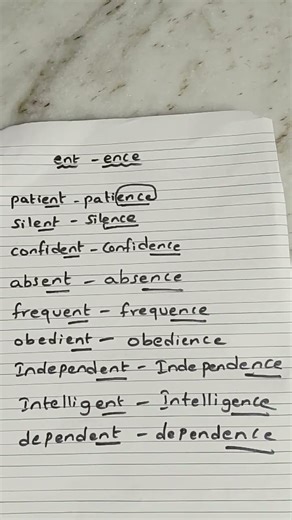 ent - ence
patient - patience
silent - silence
confident - confidence
absent - absence
frequent - frequence
obedient - obedience
Independent - Independence
Intelligent - Intelligence
dependent - dependence